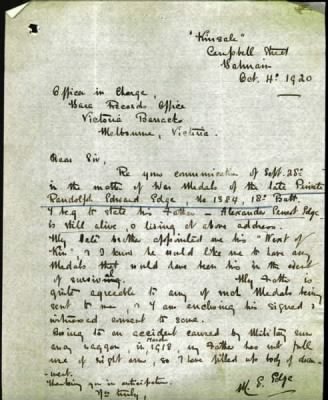 "Kinsale"
Campbell Street
Balmain
Oct. 4th 1920
Officer in Charge,
Base Records Office
Victoria Barracks
Melbourne, Victoria.
Dear Sir,
Re your communication of Sept. 28th
in the matter of War Medals of the late Private
Randolph Edward Edge, No 1384, 18th Batt.
I beg to state his Father — Alexander Ernest Edge
is still alive, & living at above address.
My late brother appointed me his "Next of
Kin", & I know he would like me to have any
Medals that would have been his in the event
of surviving. My Father is
quite agreeable to any of such Medals being
sent to me & I am enclosing his signed &
witnessed consent to same.
Owing to an accident caused by Military run
away waggon in March 1918 my Father has not full
use of right arm, so I have filled up body of docu-
ment.
Thanking you in anticipation
Yrs truly,
M. E. Edge